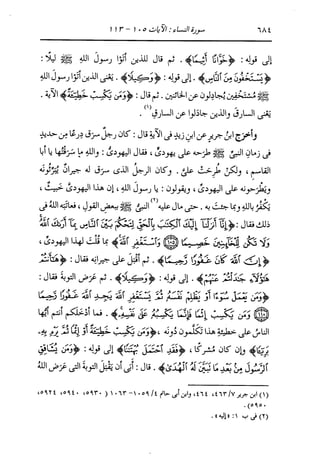 ٦٨٤ سورة النساء : الآيات ١٠٥ - ١١٣
إلى قوله : ﴿خَوَّانًا أَثِيمًا﴾ . ثم قال للذين أتَوا رسولَ اللهِ ﷺ ليلًا :
﴿يَسْتَخْفُونَ مِنَ النَّاسِ﴾ . إلى قوله : ﴿وَكِيلًا﴾ . يعنى الذين أتَوا رسولَ اللهِ
ﷺ مُسْتَخْفِين يُجادِلون عن الخائنين . ثم قال : ﴿وَمَن يَكْسِبْ خَطِيٓئَةً﴾ الآية .
يعنى السارقَ والذين جادَلوا عن السارقِ(١) .
وأخرَج ابنُ جريرٍ عن ابنِ زيدٍ فى الآيةِ قال : كان رجلٌ سرَق دِرعًا من حديدٍ
فى زمانِ النبىِّ ﷺ طرَحه على يهودىٍّ ، فقال اليهودىُّ : واللهِ ما سرَقتُها يا أبا
القاسمِ ، ولكن طُرِحَت علىَّ . وكان الرجلُ الذى سرَق له جيرانٌ يُبَرِّئونَه
ويَطرَحونَه على اليهودىِّ ، ويقولون : يا رسولَ اللهِ ، إن هذا اليهودىَّ خبيثٌ ،
يَكفُرُ باللهِ وبما جئتَ به . حتى مال عليه(٢) النبىُّ ﷺ ببعضِ القولِ ، فعاتَبه اللهُ فى
ذلك فقال : ﴿إِنَّآ أَنزَلْنَآ إِلَيْكَ الْكِتَٰبَ بِالْحَقِّ لِتَحْكُمَ بَيْنَ النَّاسِ بِمَآ أَرَىٰكَ اللَّهُ
وَلَا تَكُن لِّلْخَآئِنِينَ خَصِيمًا ١٠٥ وَاسْتَغْفِرِ اللَّهَ﴾ بما قُلتَ لهذا اليهودىِّ ،
﴿إِنَّ اللَّهَ كَانَ غَفُورًا رَّحِيمًا﴾ . ثم أقبَل على جيرانِه فقال : ﴿هَٰٓأَنتُمْ
هَٰٓؤُلَآءِ جَٰدَلْتُمْ عَنْهُمْ﴾ . إلى قوله : ﴿وَكِيلًا﴾ . ثم عرَض التوبةَ فقال :
﴿وَمَن يَعْمَلْ سُوٓءًا أَوْ يَظْلِمْ نَفْسَهُ ثُمَّ يَسْتَغْفِرِ اللَّهَ يَجِدِ اللَّهَ غَفُورًا رَّحِيمًا
١١٠ وَمَن يَكْسِبْ إِثْمًا فَإِنَّمَا يَكْسِبُهُ عَلَىٰ نَفْسِهِ﴾ . فما أدخَلكم أنتم أيُّها
الناسُ على خطيئةِ هذا تكلَّمون دُونَه ، ﴿وَمَن يَكْسِبْ خَطِيٓئَةً أَوْ إِثْمًا ثُمَّ يَرْمِ بِهِ
بَرِيٓئًا﴾ وإن كان مُشركًا ، ﴿فَقَدِ احْتَمَلَ بُهْتَٰنًا﴾ إلى قوله : ﴿وَمَن يُشَاقِقِ
الرَّسُولَ مِنۢ بَعْدِ مَا تَبَيَّنَ لَهُ الْهُدَىٰ﴾ . قال : أبَى أن يَقبَلَ التوبةَ التى عرَض اللهُ
(١) ابن جرير ٤٦٣/٧ ، ٤٦٤ ، وابن أبى حاتم ١٠٥٩/٤ - ١٠٦٣ (٥٩٣٠ ، ٥٩٤٠ ، ٥٩٢٤ ،
٥٩٥٠) .
(٢) فى ب ١ : «إليه» .